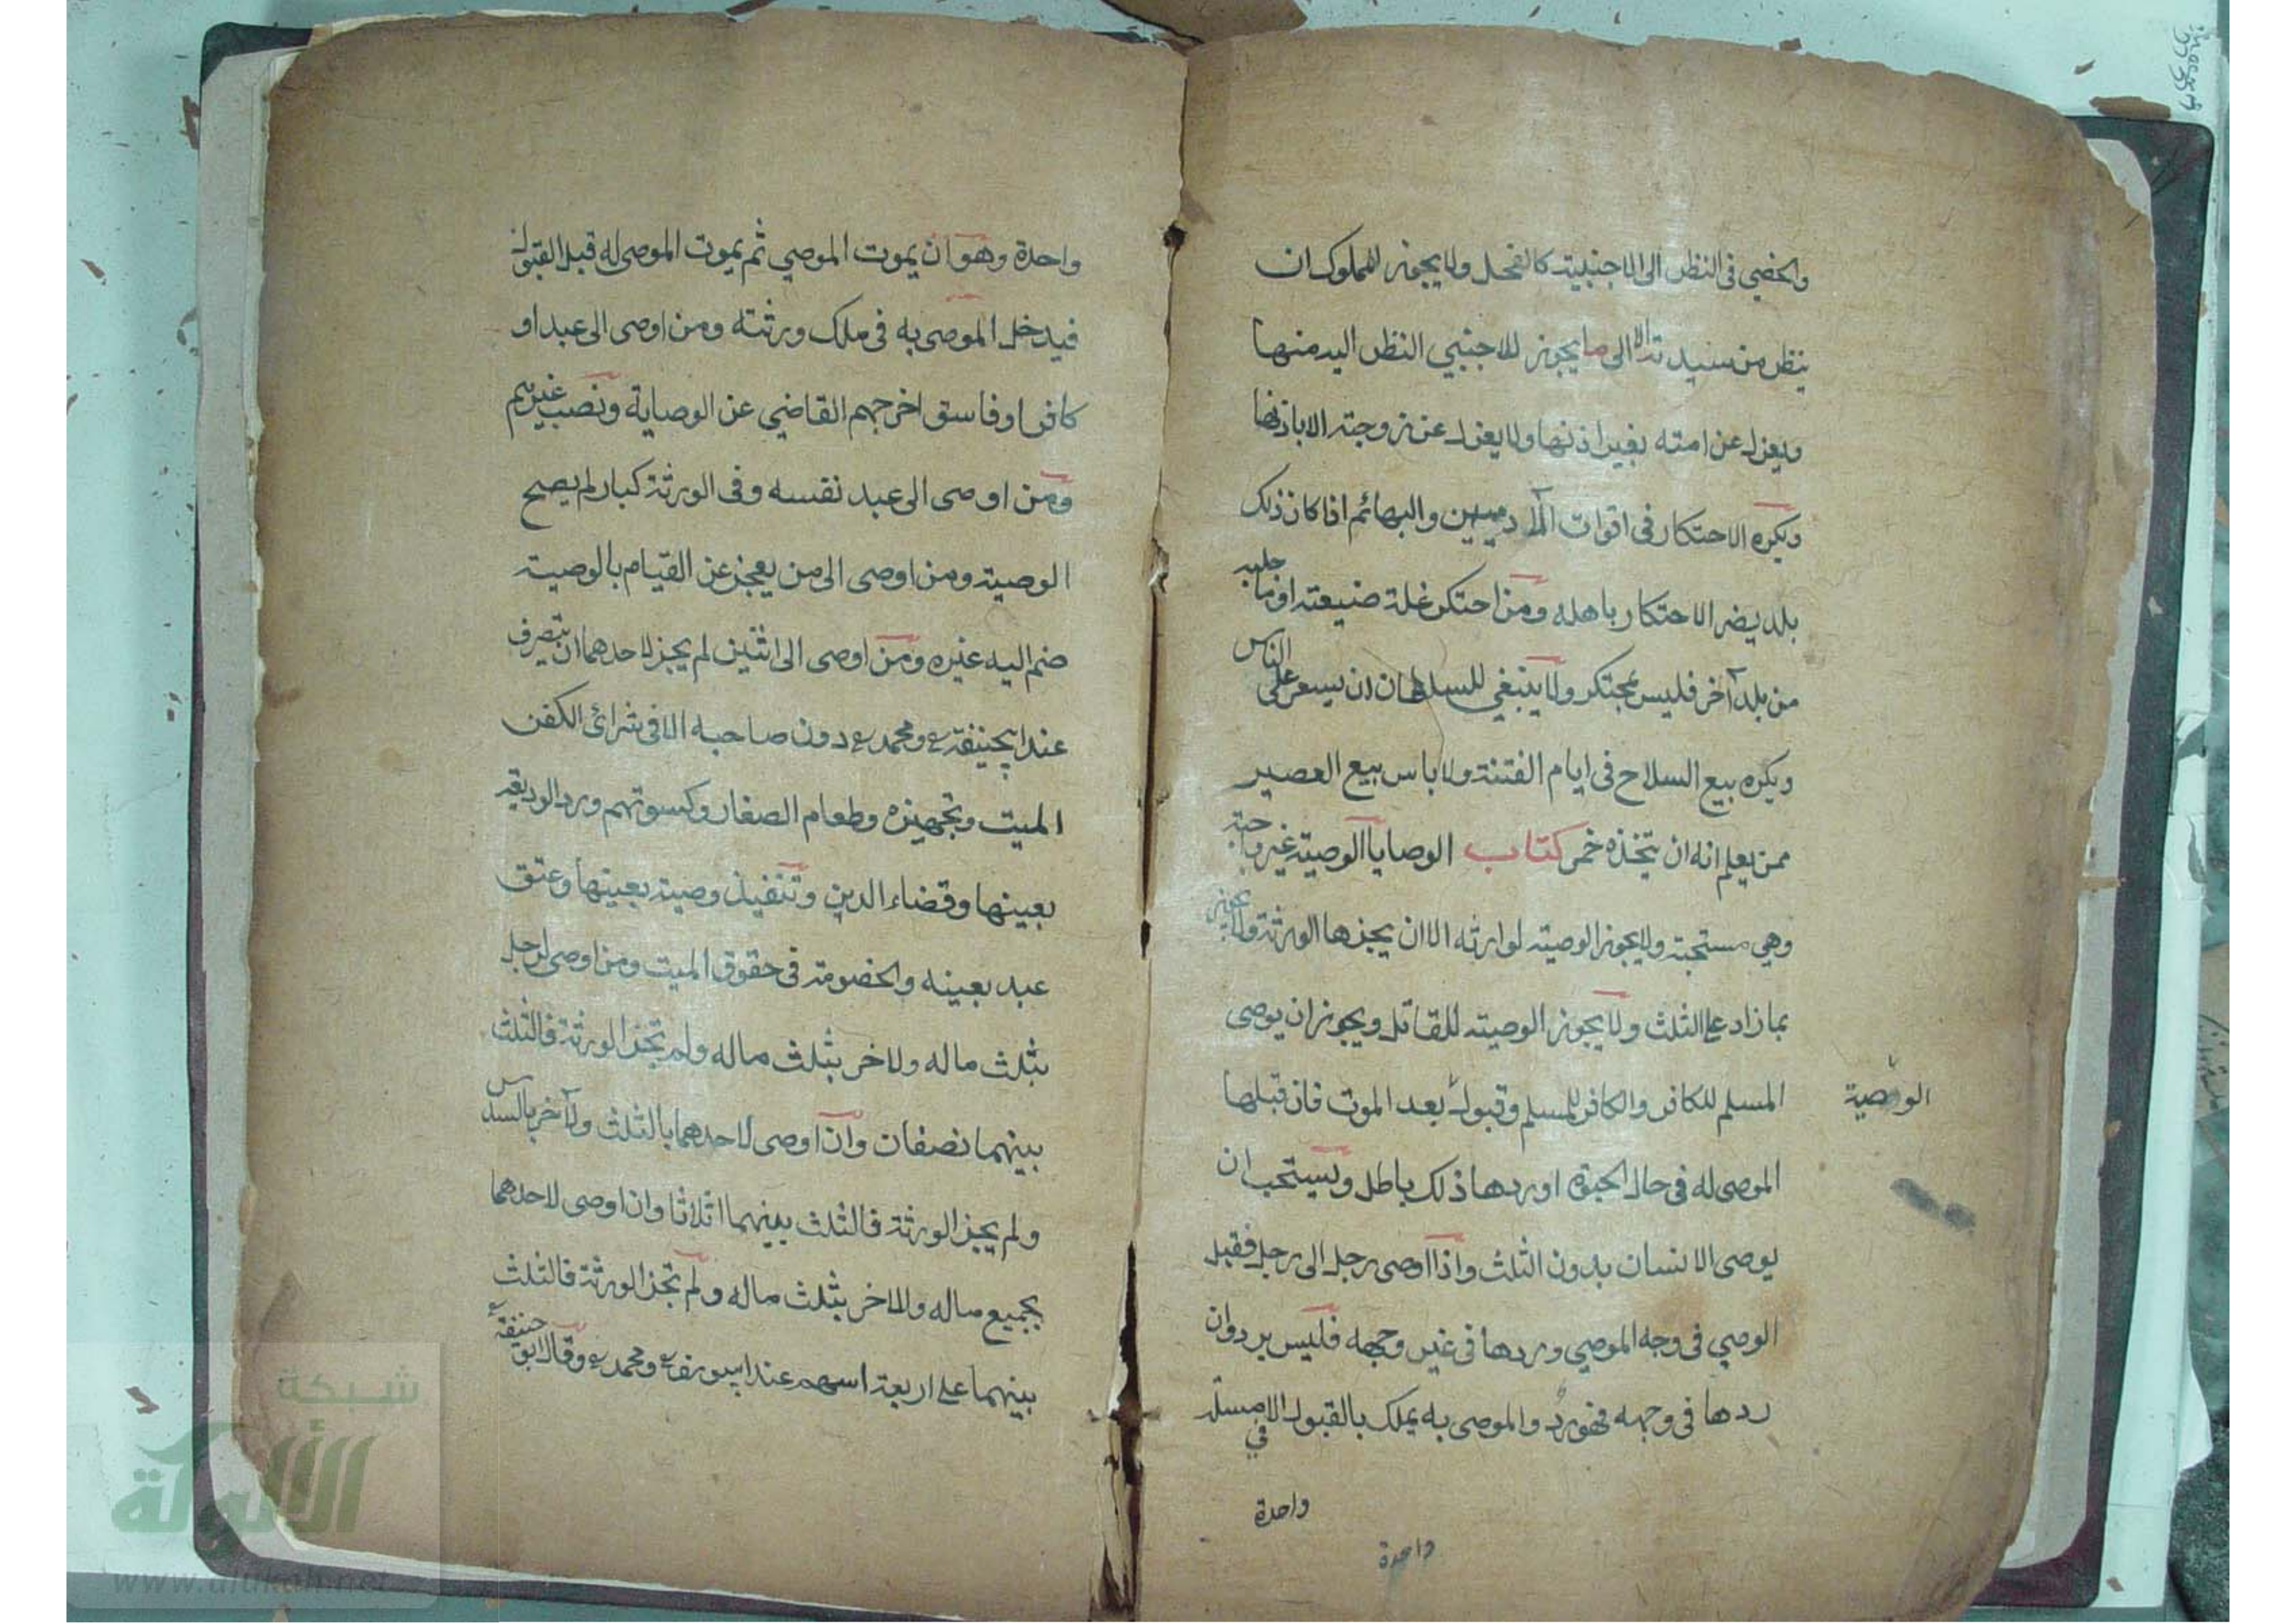 والخصي في النظر الى الاجنبية كالفحل ولا يجوز للمملوك ان
ينظر من سيدته الا الى ما يجوز للاجنبي النظر اليه منها
ويعزل عن امته بغير اذنها ولا يعزل عن زوجته الا باذنها
ويكره الاحتكار في اقوات الآدميين والبهائم اذا كان ذلك
بلد يضر الاحتكار باهله ومن احتكر غلة ضيعته او ما جلبه
من بلد آخر فليس بمحتكر ولا ينبغي للسلطان ان يسعر على الناس
ويكره بيع السلاح في ايام الفتنة ولا باس بيع العصير
ممن يعلم انه ان يتخذه خمر كتاب الوصايا الوصية غير واجبة
وهي مستحبة ولا يجوز الوصية لوارثه الا ان يجزها الورثة ولا يجوز
بما زاد على الثلث ولا يجوز الوصية للقاتل ويجوز ان يوصى
المسلم للكافر والكافر للمسلم وقبول بعد الموت فان قبلها
الوصية
الموصى له في حال الحيوة او ردها ذلك باطل ويستحب ان
يوصى الانسان بدون الثلث واذا اوصى رجل الى رجل فقبل
الوصي في وجه الموصي وردها في غير وجهه فليس برد وان
ردها في وجهه فهو رد والموصى به يملك بالقبول الا في مسئلة
واحدة
واحدة
واحدة وهو ان يموت الموصي ثم يموت الموصى له قبل القبول
فيدخل الموصى به في ملك ورثته ومن اوصى الى عبد او
كافر او فاسق اخرجهم القاضي عن الوصاية ونصب غيرهم
ومن اوصى الى عبد نفسه وفي الورثة كبار لم يصح
الوصية ومن اوصى الى من يعجز عن القيام بالوصية
ضم اليه غيره ومن اوصى الى اثنين لم يجز لاحدهما ان يتصرف
عند ابيحنيفة ع ومحمد ع دون صاحبه الا في شرائ الكفن
الميت وتجهيزه وطعام الصغار وكسوتهم ورد الوديعة
بعينها وقضاء الدين وتنفيذ وصية بعينها وعتق
عبد بعينه والخصومة في حقوق الميت ومن اوصى لرجل
بثلث ماله ولاخر بثلث ماله ولم تجز الورثة فالثلث
بينهما نصفان وان اوصى لاحدهما بالثلث ولآخر بالسدس
ولم يجز الورثة فالثلث بينهما اثلاثا وان اوصى لاحدهما
بجميع ماله والاخر بثلث ماله ولم تجز الورثة فالثلث
بينهما على اربعة اسهم عند ابيوسف ع ومحمد ع وقال ابو حنيفة ع
شبكة
الألوكة
www.alukah.net